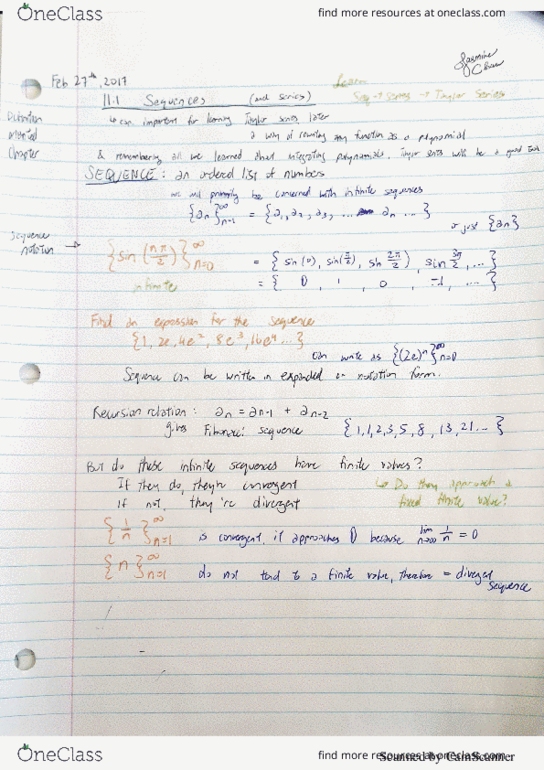 OneClass
find more resources at oneclass.com
Jasmine
Feb 27th, 2017
Learn
11.1 Sequences (and series)
Seq → Series → Taylor Series
Definition
↳ are important for learning Taylor series later
a way of rewriting any function as a polynomial
Chapter
& remembering all we learned about integrating polynomials, Taylor series will be a good tool
SEQUENCE: an ordered list of numbers
we will primarily be concerned with infinite sequences
{an}∞n=1 = {a1, a2, a3, ... an ... }
or just {an}
Sequence notation →
{sin (nπ/2)}∞n=0 = { sin(0), sin(π/2), sin 2π/2), sin 3π/2, ... }
infinite = { 0, 1, 0, -1, ... }
Find an expression for the sequence
{1, 2e, 4e², 8e³, 16e⁴ ... }
can write as {(2e)ⁿ}∞n=0
Sequence can be written in expanded or notation form.
Recursion relation: an = an-1 + an-2
gives Fibonacci sequence {1,1,2,3,5,8,13,21... }
But do these infinite sequences have finite values?
If they do, they're convergent
↳ Do they approach a
If not, they're divergent
fixed finite value?
{1/n}∞n=1 is convergent, it approaches 0 because lim n→∞ 1/n = 0
{n}∞n=1 do not tend to a finite value, therefore = divergent
sequence
OneClass
find more resources at oneclass.com
Scanned by CamScanner